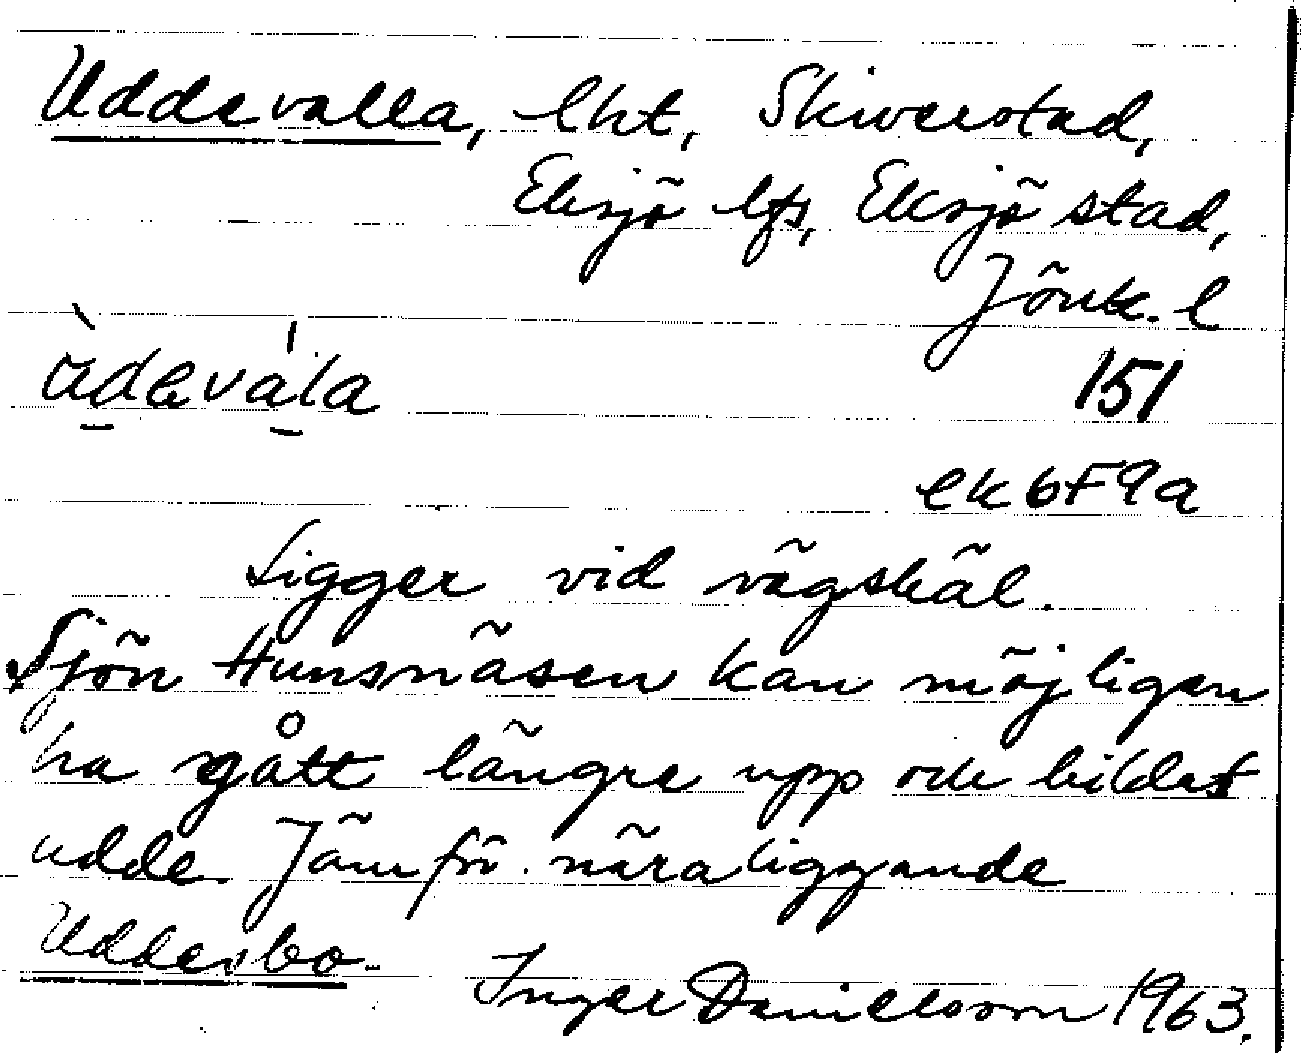 Uddevalla, lht, Skiverstad,
Eksjö lfs, Eksjö stad,
Jönk. l
ùdevála
151
ek 6F9a
Ligger vid vägskäl.
Sjön Hunsnäsen kan möjligen
ha gått längre upp och bildat
udde. Jämför näraliggande
Uddesbo.
Inger Danielsson 1963.